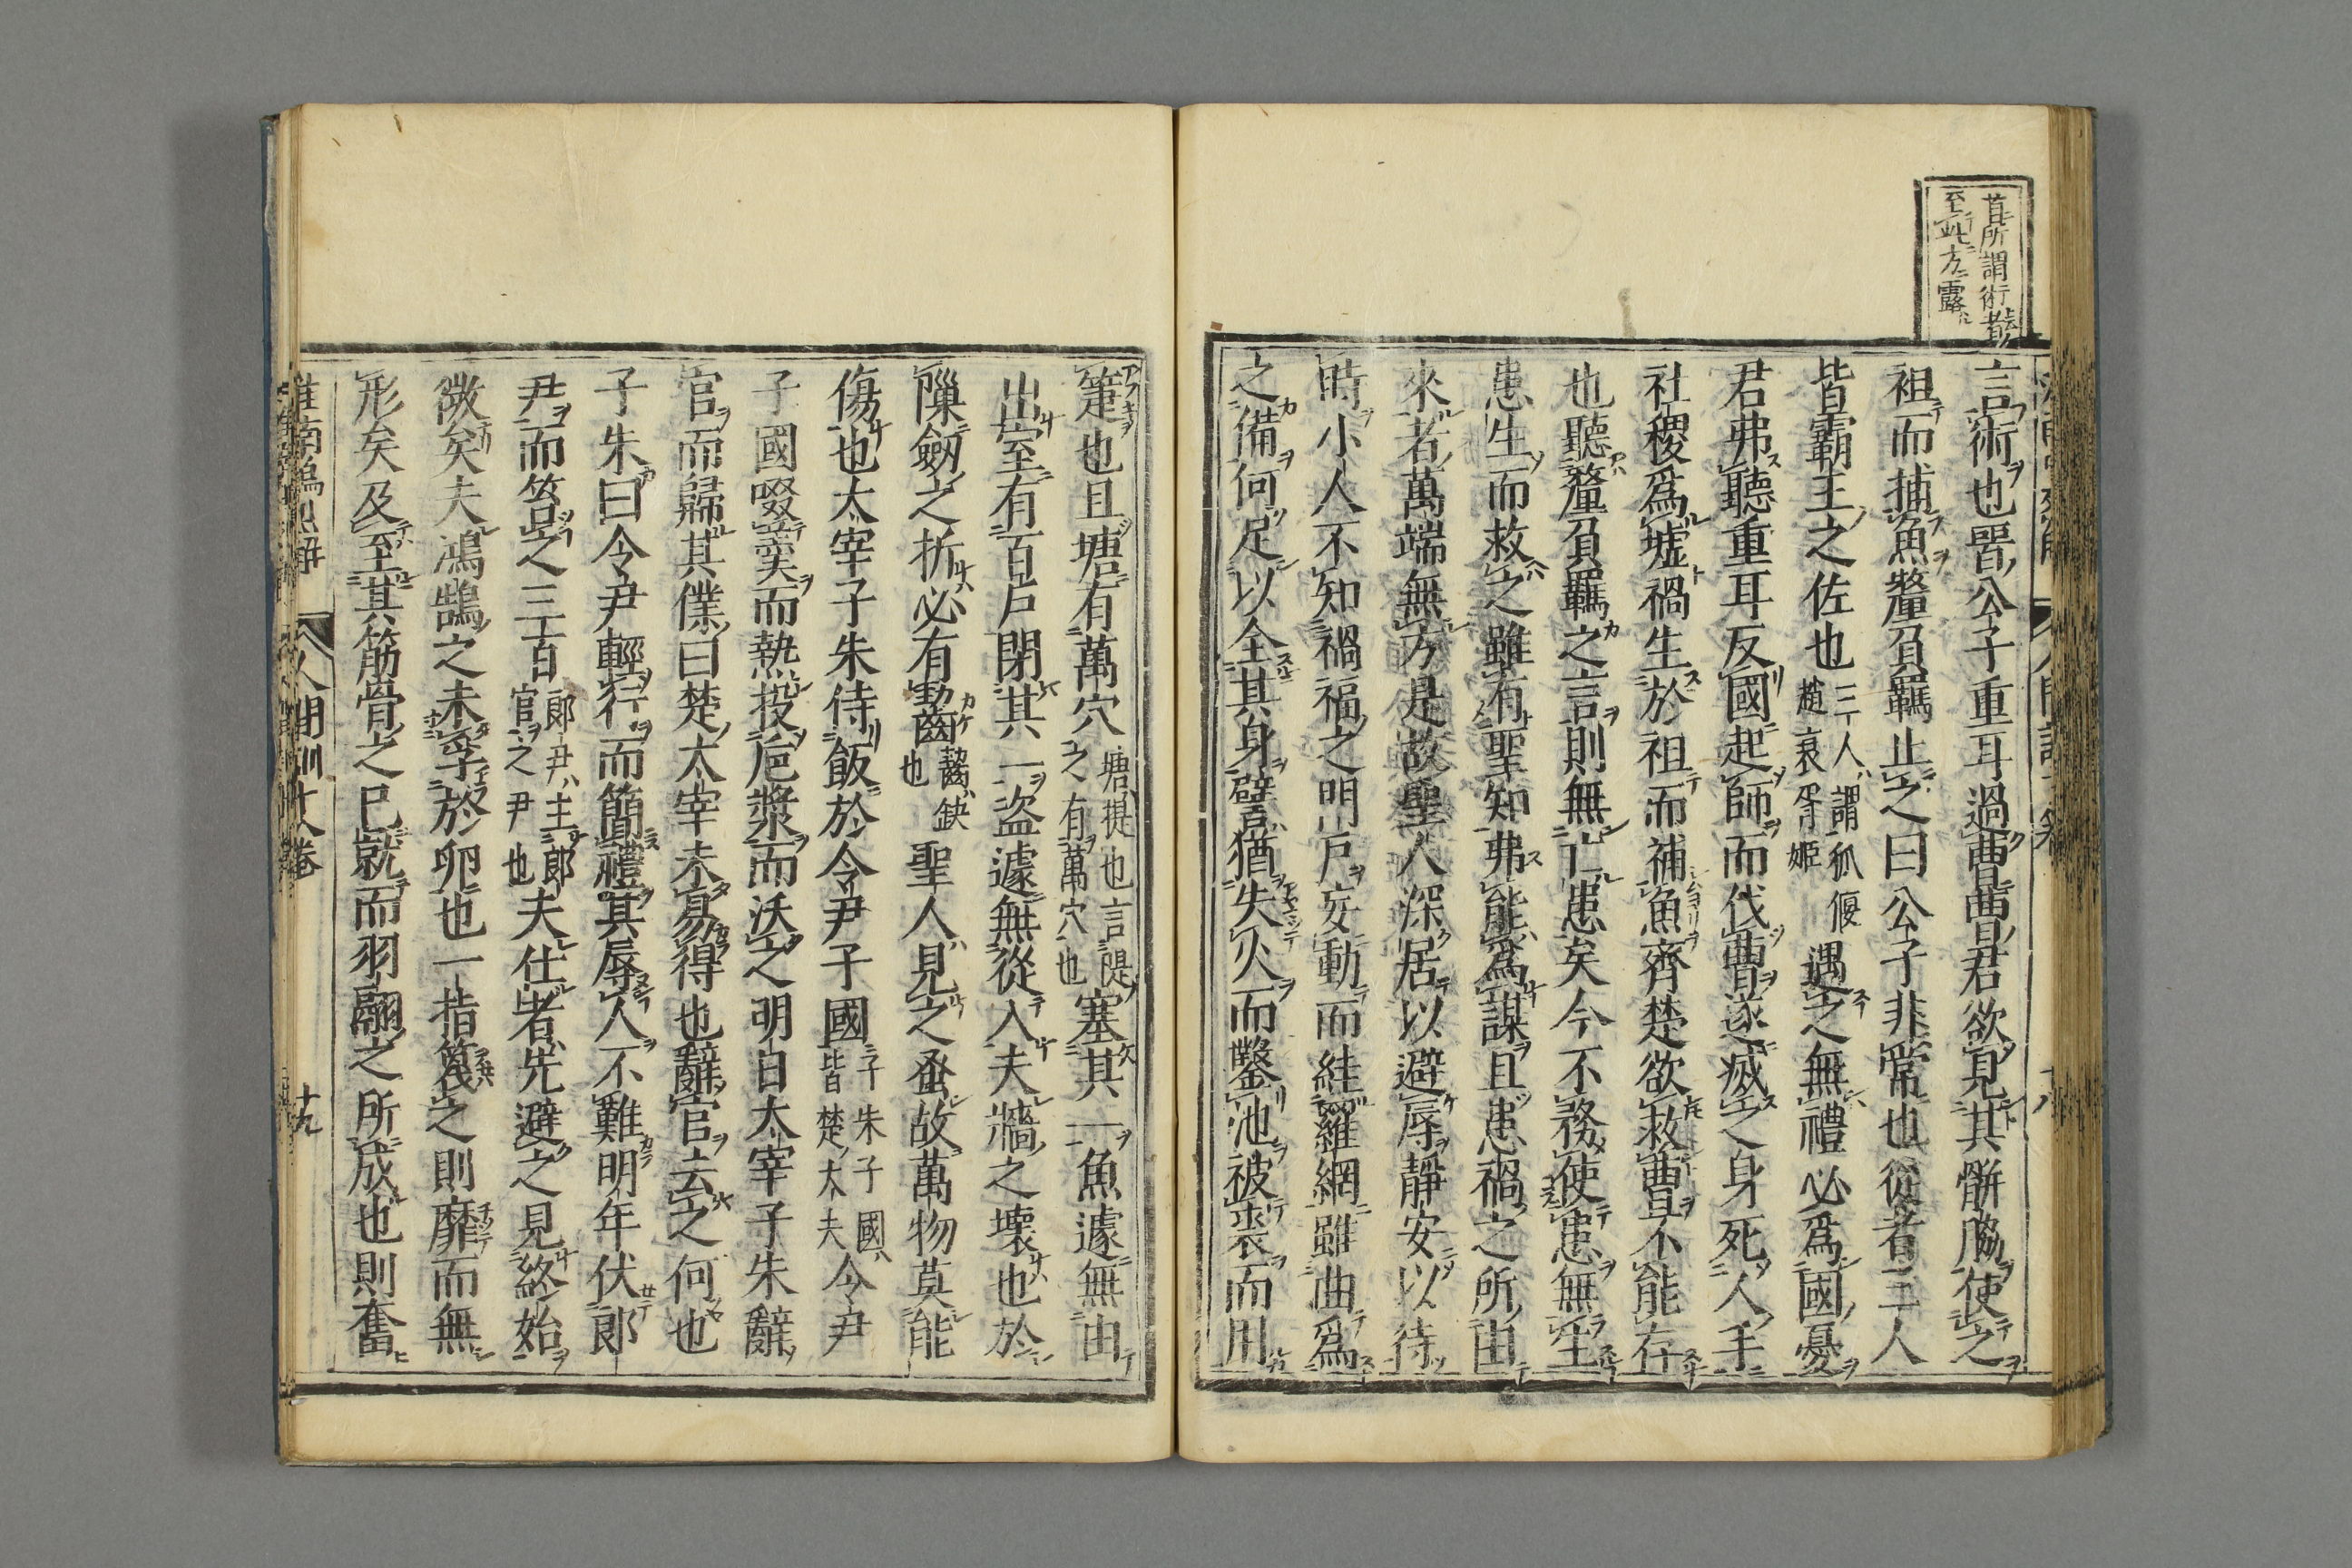 首所謂術數
至此方露
言術也晉公子重耳過曹曹君欲見其骿脇使之
袒而捕魚釐負羈止之曰公子非常也從者三人
皆霸王之佐也三人謂狐偃趙衰胥姬遇之無禮必爲國憂
君弗聽重耳反國起師而伐曹遂滅之身死人手
社稷爲墟禍生於袒而補魚齊楚欲救曹不能存
也聽釐負羈之言則無亡患矣今不務使患無生
患生而救之雖有聖知弗能爲謀且患禍之所由
來者萬端無方是故聖人深居以避辱靜安以待
時小人不知禍福之明戸妄動而絓羅網雖曲爲
之備何足以全其身譬猶失火而鑿池被裘而用
箑也且塘有萬穴塘提也言隄之有萬穴也塞其一魚遽無由
出室有百戸閉其一盗遽無從入夫牆之壞也於
隟劒之折必有齧齧缺也聖人見之蚤故萬物莫能
傷也太宰子朱侍飯於令尹子國子朱子國皆楚大夫令尹
子國啜羹而熱投巵漿而沃之明日太宰子朱辭
官而歸其僕曰楚太宰未易得也辭官去之何也
子朱曰令尹輕行而簡禮其辱人不難明年伏郎
尹而笞之三百郎尹主郎官之尹也夫仕者先避之見終始
微矣夫鴻鵠之未孚於卵也一指篾之則靡而無
形矣及至其筋骨之已就而羽翮之所成也則奮
人間訓 十八卷 十九